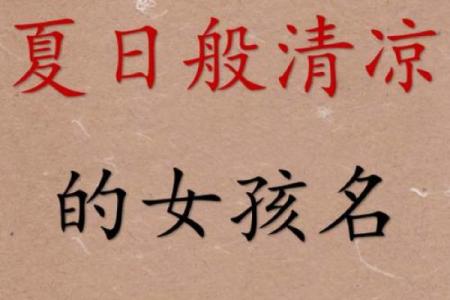 夏日般清凉
的女孩名